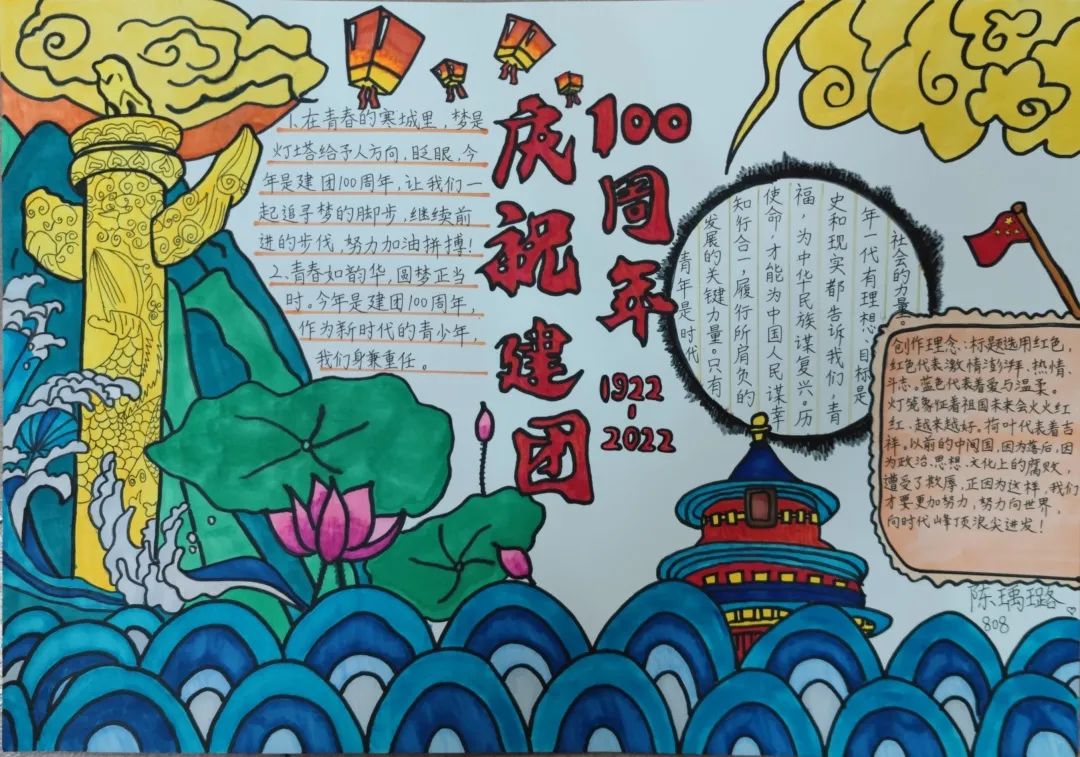 1.在青春的寒城里，梦是
灯塔给予人方向，眨眼，今
年是建团100周年，让我们一
起追寻梦的脚步，继续前
进的步伐，努力加油拼搏！
2.青春如韵华，圆梦正当
时。今年是建团100周年，
作为新时代的青少年，
我们身兼重任。
庆祝建团
100周年
1922-2022
青年是时代
发展的关键力量。只有
知行合一，履行所肩负的
使命，才能为中国人民谋幸
福，为中华民族谋复兴。历
史和现实都告诉我们，青
年一代有理想、目标是
社会的力量。
创作理念：标题选用红色，
红色代表激情澎湃、热情、
斗志。蓝色代表着爱与温柔。
灯笼象征着祖国未来会火火红
红、越来越好，荷叶代表着吉
祥。以前的中国，因为落后，因
为政治、思想、文化上的腐败，
遭受了欺辱，正因为这样，我们
才要更加努力，努力向世界，
向时代峰顶浪尖进发！
陈瑀璐
808